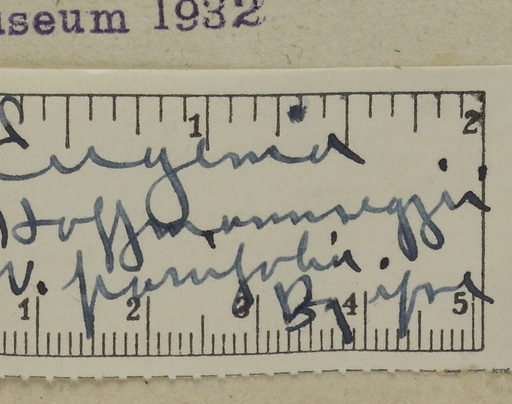 useum 1932
1 2
Eugenia
Hoffmannseggii
v. parvifolia.
1 2 3 4 5